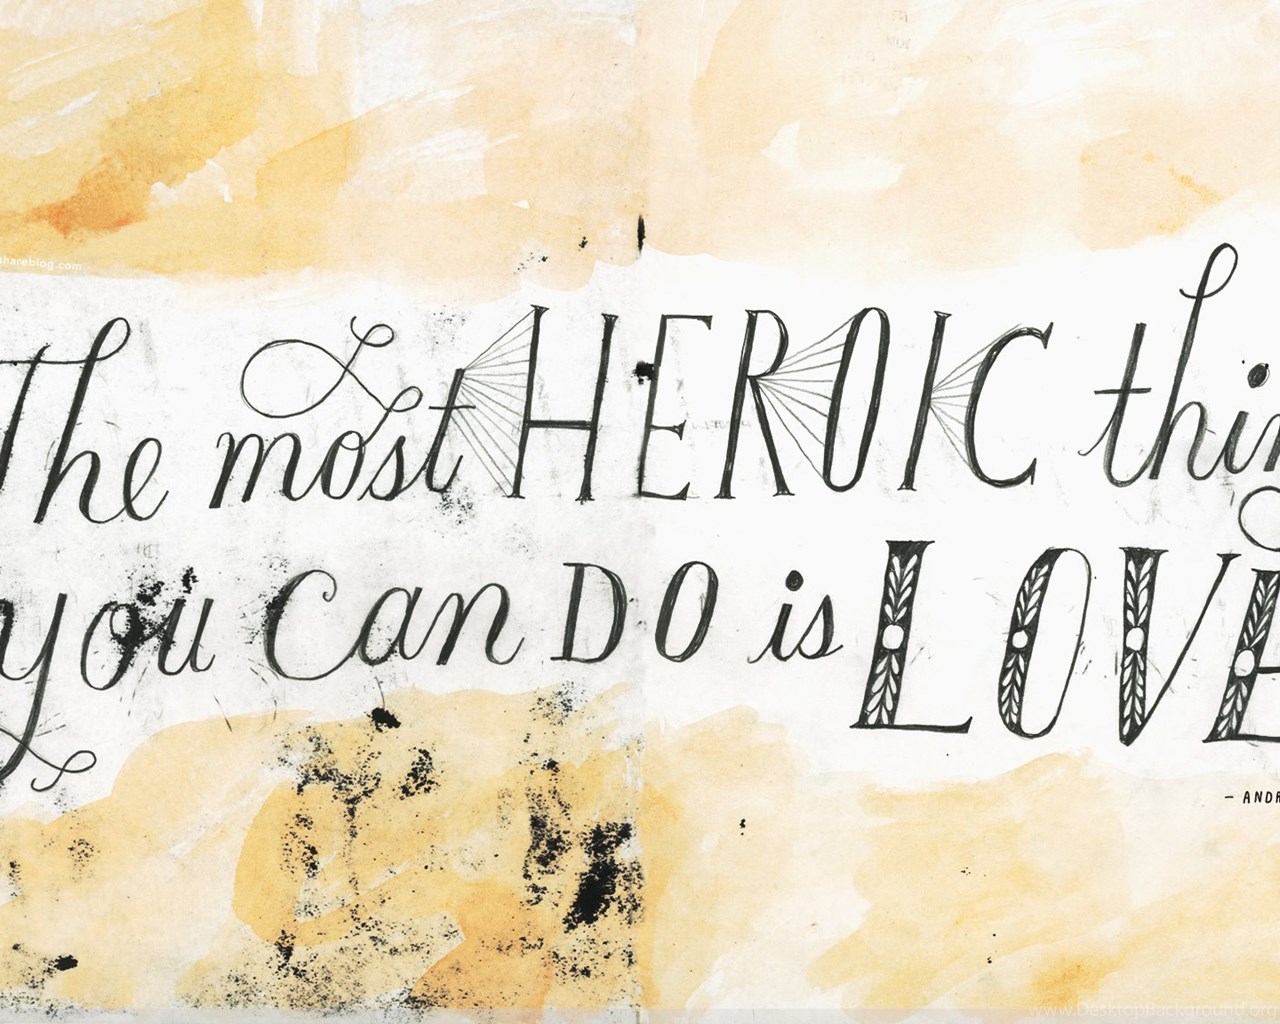 shareblog.com
The most HEROIC thin
you Can DO is LOVE
- ANDR
www.DesktopBackground.org